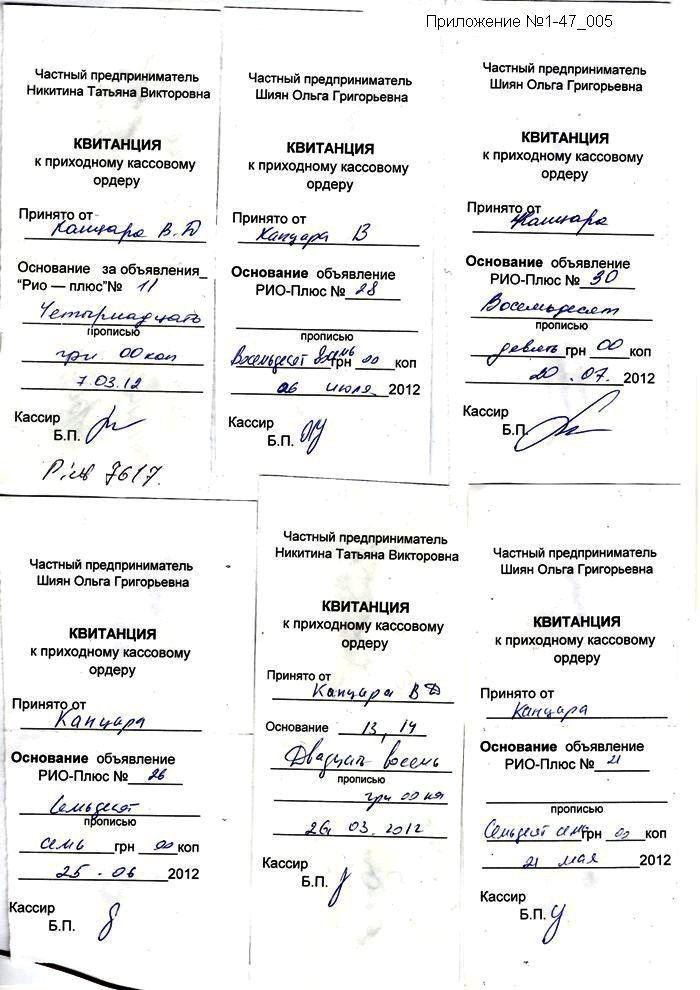 Приложение №1-47_005
Частный предприниматель
Никитина Татьяна Викторовна
КВИТАНЦИЯ
к приходному кассовому
ордеру
Принято от
Канцара В.Д
Основание за объявления_
"Рио — плюс"№ 11
Четырнадцать
прописью
грн 00 коп
7.03.12
Кассир
Б.П.
7617.
Частный предприниматель
Шиян Ольга Григорьевна
КВИТАНЦИЯ
к приходному кассовому
ордеру
Принято от
Канцара В
Основание объявление
РИО-Плюс № 28
прописью
Восемьдесят грн 00 коп
06 июля 2012
Кассир
Б.П.
Частный предприниматель
Шиян Ольга Григорьевна
КВИТАНЦИЯ
к приходному кассовому
ордеру
Принято от
Канцара
Основание объявление
РИО-Плюс № 30
Восемьдесят
прописью
девять грн 00 коп
20 .07. 2012
Кассир
Б.П.
Частный предприниматель
Шиян Ольга Григорьевна
КВИТАНЦИЯ
к приходному кассовому
ордеру
Принято от
Канцара
Основание объявление
РИО-Плюс № 26
Семьдесят
прописью
семь грн 00 коп
25 . 06 2012
Кассир
Б.П.
Частный предприниматель
Никитина Татьяна Викторовна
КВИТАНЦИЯ
к приходному кассовому
ордеру
Принято от
Канцара В Д
Основание 13, 14
Двадцать восемь
прописью
грн 00 кп
26. 03. 2012
Кассир
Б.П.
Частный предприниматель
Шиян Ольга Григорьевна
КВИТАНЦИЯ
к приходному кассовому
ордеру
Принято от
Канцара
Основание объявление
РИО-Плюс № 21
прописью
Семьдесят семь грн 00 коп
21 мая 2012
Кассир
Б.П.